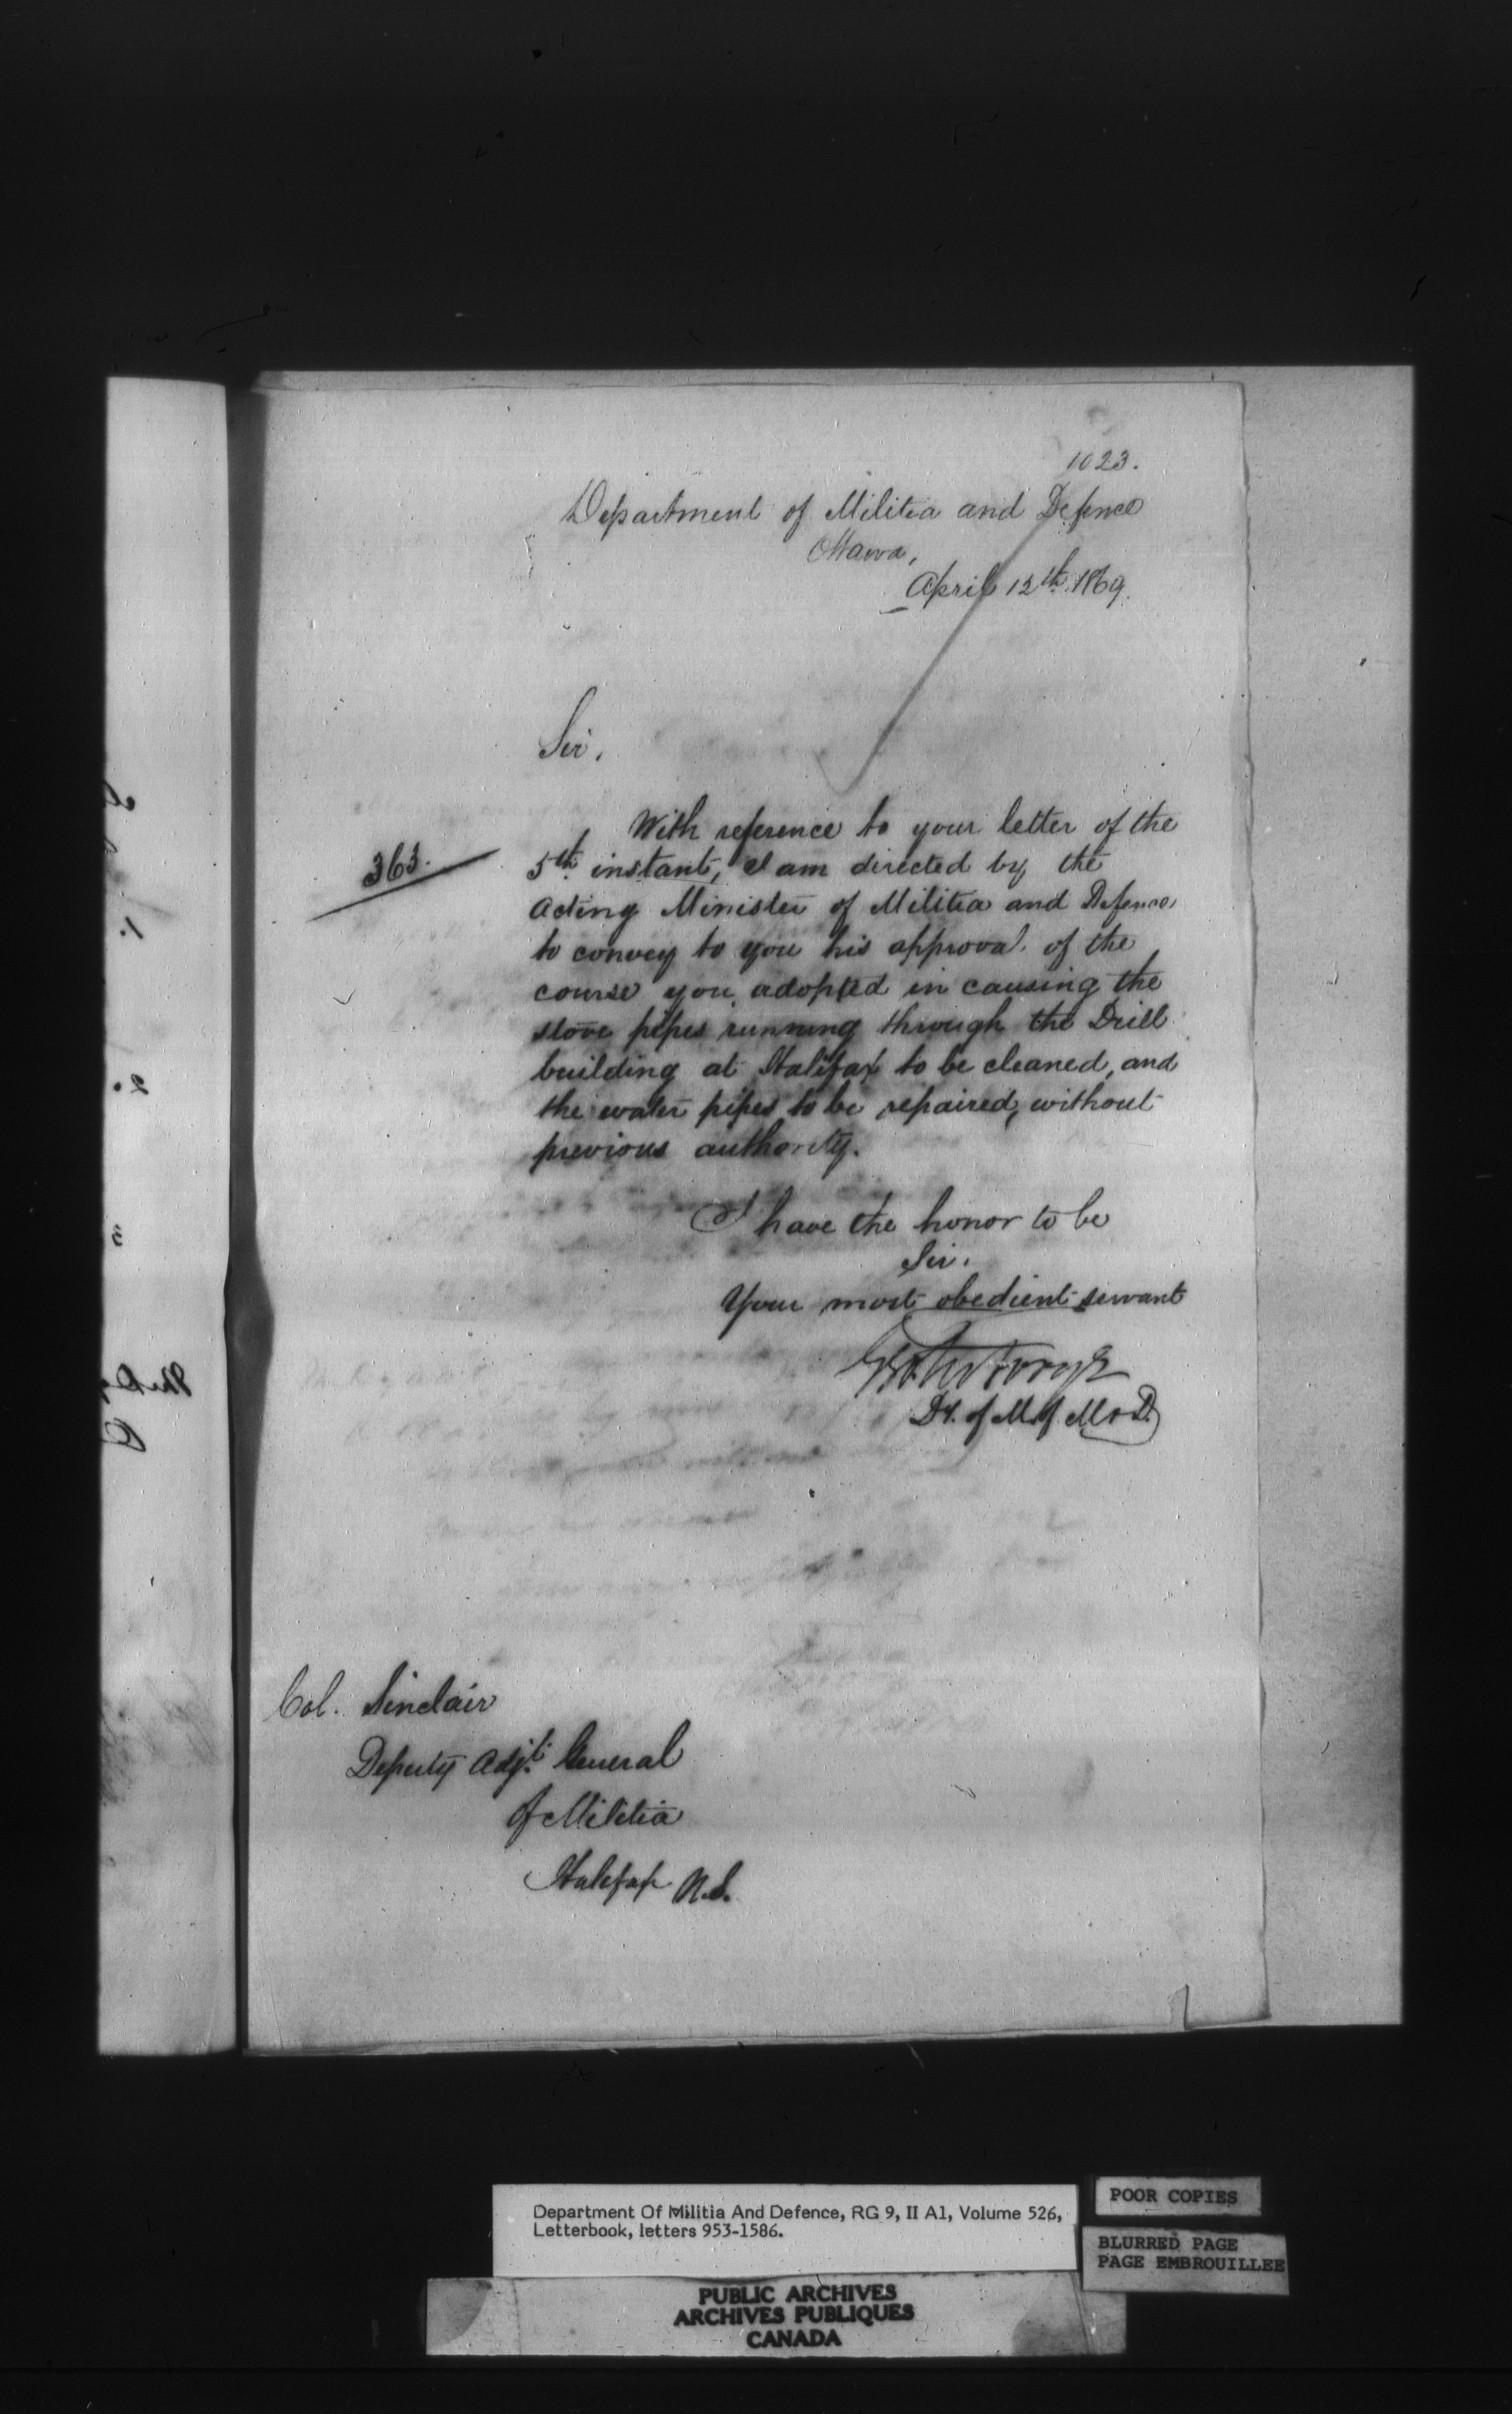 1023.
Department of Militia and Defence
Ottawa,
April 12th. 1869.
Sir,
With reference to your letter of the
363.
5th. instant, I am directed by the
Acting Minister of Militia and Defence,
to convey to you his approval of the
course you adopted in causing the
stove pipes running through the Drill
building at Halifax to be cleaned, and
the water pipes to be repaired, without
previous authority.
I have the honor to be
Sir.
Your most obedient servant
Dy. of M. of M & D.
Col. Sinclair
Deputy Adjt. General
of Militia
Halifax N.S.
Department Of Militia And Defence, RG 9, II A1, Volume 526,
Letterbook, letters 953-1586.
POOR COPIES
BLURRED PAGE
PAGE EMBROUILLEE
PUBLIC ARCHIVES
ARCHIVES PUBLIQUES
CANADA